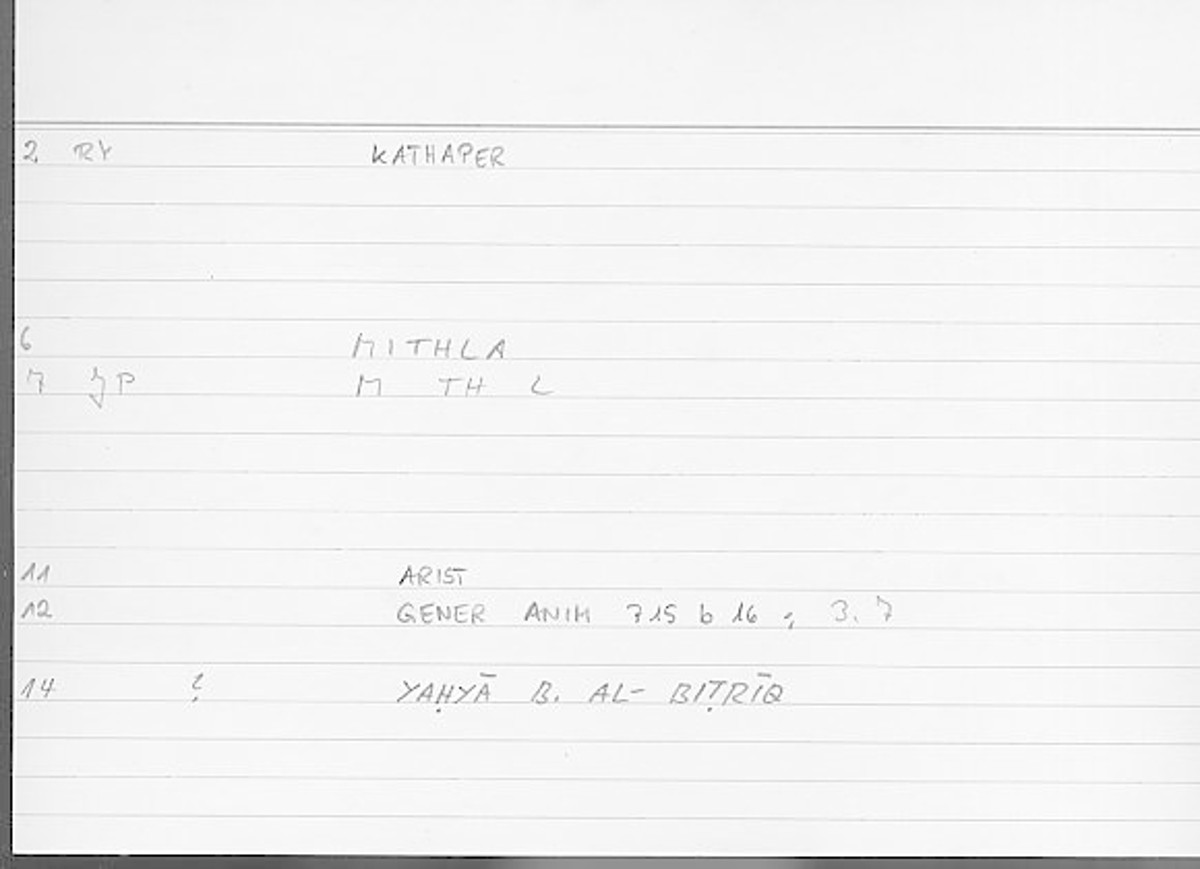 2 RY KATHAPER
6 MITHLA
7 JP M TH L
11 ARIST
12 GENER ANIM 715 b 16 ; 3. 7
14 ? YAḤYĀ B. AL- BIṬRĪQ